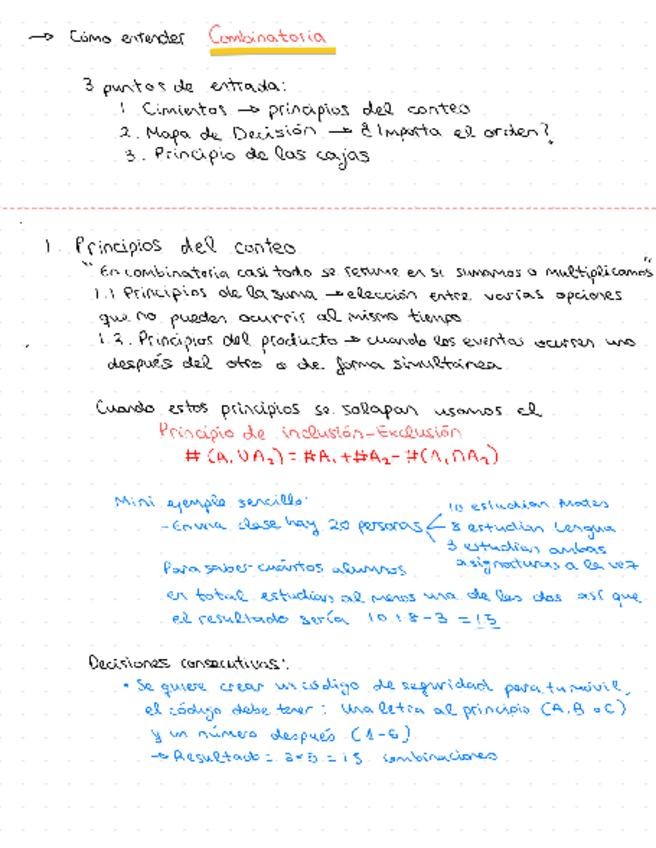 → Cómo entender Combinatoria
3 puntos de entrada:
1. Cimientos → principios del conteo
2. Mapa de Decisión → ¿Importa el orden?
3. Principio de las cajas
1. Principios del conteo
"En combinatoria casi todo se resume en si sumamos o multiplicamos"
1.1 Principios de la suma → elección entre varias opciones
que no pueden ocurrir al mismo tiempo
1.2. Principios del producto → cuando los eventos ocurren uno
después del otro o de forma simultánea
Cuando estos principios se solapan usamos el
Principio de inclusión-Exclusión
#(A₁∪A₂) = #A₁ + #A₂ - #(A₁∩A₂)
Mini ejemplo sencillo:
- En una clase hay 20 personas
10 estudian Mates
8 estudian Lengua
3 estudian ambas
asignaturas a la vez
Para saber cuántos alumnos
en total estudian al menos una de las dos así que
el resultado sería 10+8-3 = 15
Decisiones consecutivas:
• Se quiere crear un código de seguridad para tu móvil,
el código debe tener: Una letra al principio (A, B o C)
y un número después
→ Resultado = 3×5 = 15 combinaciones